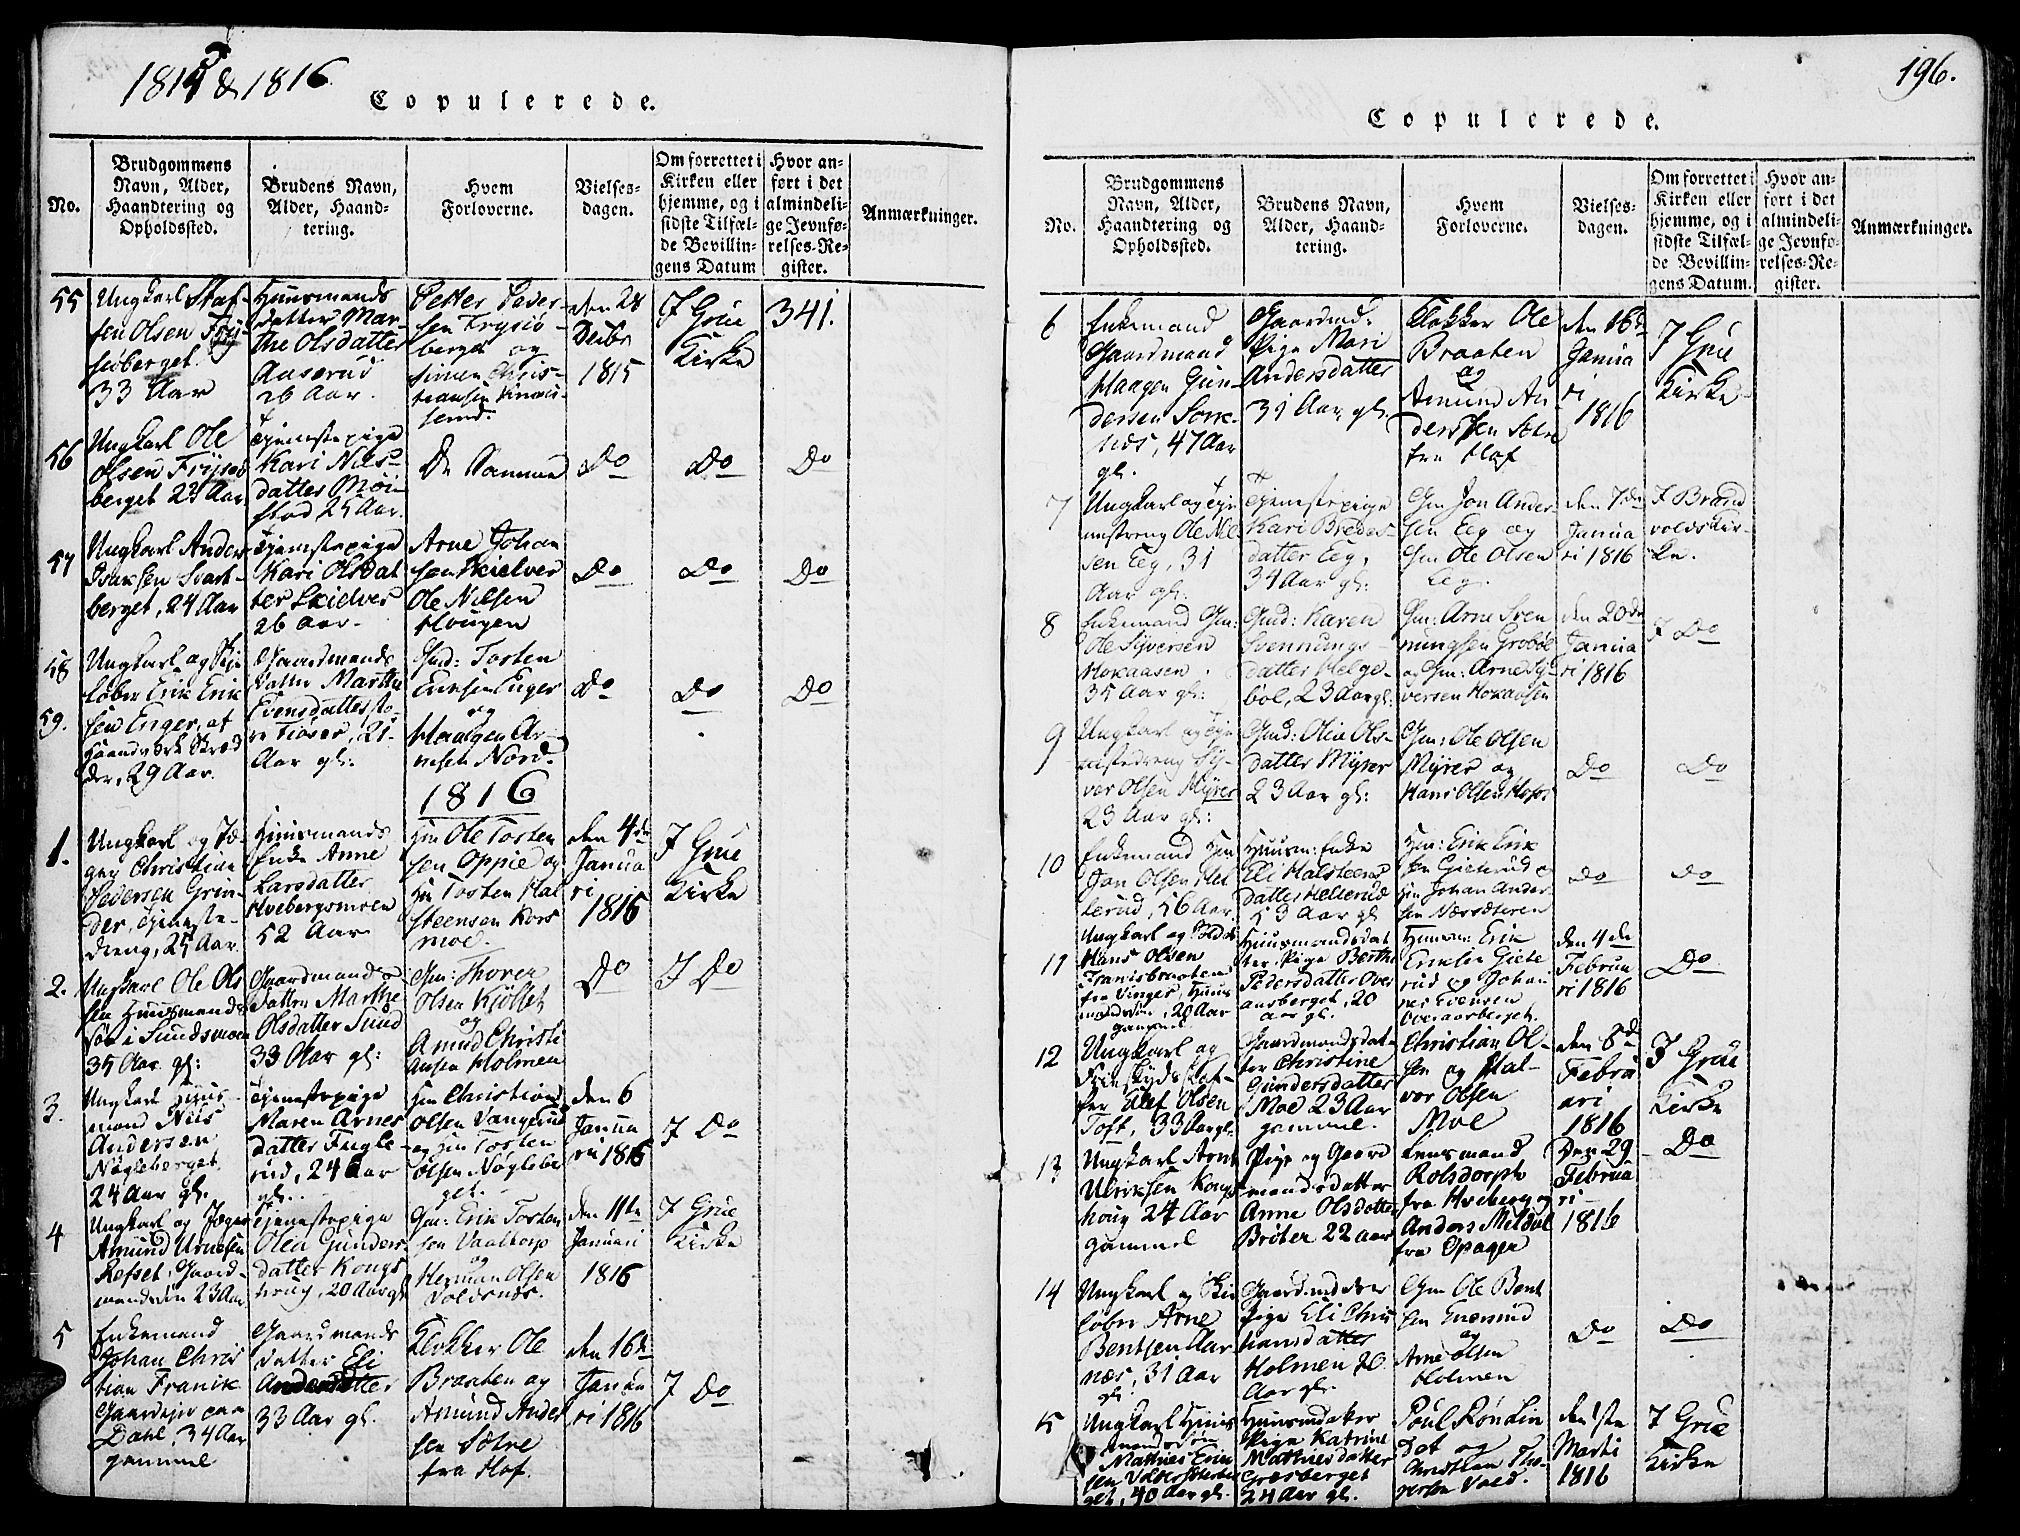 1815 & 1816
Copulerede.
No.
Brudgommens Navn, Alder, Haandtering og Opholdssted.
Brudens Navn, Alder, Haandtering.
Hvem Forloverne.
Vielsesdagen.
Om forrettet i Kirken eller hjemme, og i sidste Tilfælde Bevillingens Datum
Hvor anført i det almindelige Jevnførelses-Register.
Anmærkninger.
55
Ungkarl Staf-
fen Olsen Fryg-
søberget.
33 Aar
Huusmands
datter Mar-
the Olsdatter
Aaserud
26 Aar.
Petter Peder-
sen Frysiø-
berget og
Simen Chris-
tiansen
den 28
Decbr
1815
I Grue
Kirke
341.
56
Ungkarl Ole
Olsen Frysøe
berget 22 Aar
Tjenestepige
Kari Nils-
datter Moi-
stad 25 Aar.
De Samme
Do
Do
Do
57
Ungkarl Anders
Isaksen Svart-
berget, 24 Aar
Tjenestepige
Kari Olsdat
ter Skielver
26 Aar.
Arne Johan
sen Skielver
Ole Nilsen
Hougen
Do
Do
Do
58
59.
Ungkarl og Skie
løber Erik Erik
sen Enger, af
Haandverk Skræd
der, 29 Aar.
Gaardmands
datter Marthe
Evensdatter
21
Aar gl:
Gmd: Tosten
Eriksen Enger
og
Haagen Ar-
nesen Nord.
Do
Do
Do
1816
1.
Ungkarl og Jæ-
ger Christian
Pedersen Grin-
der, Tjeneste-
dreng, 25 Aar.
Huusmands
Enke Anne
Larsdatter
Hvebergsmoen
52 Aar
Hm Ole Tosten
sen Oppie og
Hm Tosten Hal
steensen Kors
moe.
den 4de
Janua
ri
1816
I Grue
Kirke
2.
Ungkarl Ole Ols
sen Huusmands
Søn i Sundsmoen
35 Aar gl:
Gaardmands
datter Marthe
Olsdatter Sund
33 Aar gl:
Gm: Thorer
Olsen Kjøllet
og
Amund Christi
ansen Holmen
Do
I Do
3.
Ungkarl Huus-
mand Nils
Andersen
Nøgleberget
24 Aar gl.
Tjenestepige
Maren Arnes
datter Fugle
rud, 24 Aar
gl.
Hm Christian
Olsen Vangerud
og Hm Tosten
Olsen Nøglebe
get.
den 6
Janua
ri 1816
I Do
4
Ungkarl og Jæger
Amund Arnesen
Refset, Gaard-
mandssøn 23 Aar
Tjenestepige
Olea Gunders
datter Kongs
houg, 20 Aar gl
Gm: Erik Tosten
sen Vaaltorp
og
Herman Olsen
Voldsnæs.
den 11te
Januari
1816
I Grue
Kirke
5
Enkemand
Johan Chris
tian Franik
Gaardejer paa
Dahl, 34 Aar
gammel
Gaardmands
datter Eli
Andersdatter
33 Aar gl.
Klokker Ole
Braaten og
Amund Ander
sen Sotne
fra Hof.
den 16de
Janua
ri 1816
I Do
196.
Copulerede.
No.
Brudgommens Navn, Alder, Haandtering og Opholdssted.
Brudens Navn, Alder, Haandtering.
Hvem Forloverne.
Vielsesdagen.
Om forrettet i Kirken eller hjemme, og i sidste Tilfælde Bevillingens Datum.
Hvor anført i det almindelige Jevnførelses-Register.
Anmærkninger.
6
Enkemand
Gaardmand
Haagen Gun-
dersen Sork-
næs, 47 Aar
gl.
Gaardmd:
Pige Mari
Andersdatter
31 Aar gl.
Klokker Ole
Braaten
og
Amund An
dersen Sotne
fra Hof
den 16de
Janua
ri
1816
I Grue
Kirke
7
Ungkarl og Tje
nestedreng Ole Nil
sen Eeg, 31
Aar gl.
Tjenestepige
Kari Breders-
datter Eeg,
34 Aar gl:
Gm Jon Ander
sen Eeg og
Gm Ole Olsen
Eeg.
den 7de
Janua
ri 1816
I Brand
volds Kir-
ke.
8
Enkemand Gm:
Ole Syversen
Mokaasen
35 Aar gl:
Gmd: Karen
Svennungs-
datter Helge-
bøl, 23 Aar gl:
Gm: Arne Sven
nungsen Grobøl
og Gm: Arne Sy-
versen Mokaasen
den 20de
Janua
ri 1816
I Do
9
Ungkarl og Tje
nestedreng Sy-
ver Olsen Myrer
23 Aar gl:
Gmd: Olia Ols-
datter Myrer
23 Aar gl:
Gm: Ole Olsen
Myrer og
Hans Olsen Hofos
Do
Do
10
Enkemand Hm
Jon Olsen Hel
lerud, 56 Aar.
Huusm: Enke
Eli Halsteens
datter Hellerud
53 Aar gl
Hm: Erik Erik
sen Gieterud og
Hm Johan Ander
sen Næresteren
Do
Do
11
Ungkarl og Soldat
Hans Olsen
Franisbraaten
fra Vinger, Huus
mandssøn, 20 Aar
gammel
Huusmandsdat
ter, Pige Berthe
Pedersdatter Over
aasberget, 20
Aar gl.
Huusm: Erik
Eriksen Giete
rud og Johan
nes Evensen
Overaasberget.
den 4de
Februa
ri 1816
Do
12
Ungkarl og
Skaf-
fer Ulef Olsen
Toft, 33 Aar gl.
Gaardmandsdat-
ter Christine
Gundersdatter
Moe 23 Aar
gammel.
Christian Ol-
sen og Hal-
vor Olsen
Moe
den 8de
Febru
ari
1816
I Grue
Kirke
13
Ungkarl Arnt
Ulriksen Kongs
houg 24 Aar
gammel
Pige og Gaard
mandsdatter
Anne Olsdatter
Brøter 22 Aar
Lensmand
Rolsdorph
fra Hveberg og
Anders Meldal
fra Opager
Den 29
Februa
ri
1816
Do
14
Ungkarl og Skie
løber Arne
Bentsen Aar
næs, 31 Aar
gl.
Gaardmdatter
Pige Eli Chris
tiansdatter
Holmen 20
Aar gl.
Gm Ole Bent
sen Grærud
og
Arne Olsen
Holmen
Do
Do
15
Ungkarl Huus
mandssøn
Mathies Erik
sen
get, 40 Aar gl.
Huusmdatter
Pige Katrine
Mathiesdatter
Græsberget
24 Aar gl.
Poul Rønlin
det og
Christian Tho-
resen Vold.
den 1ste
Marti
1816
I Grue
Kirke